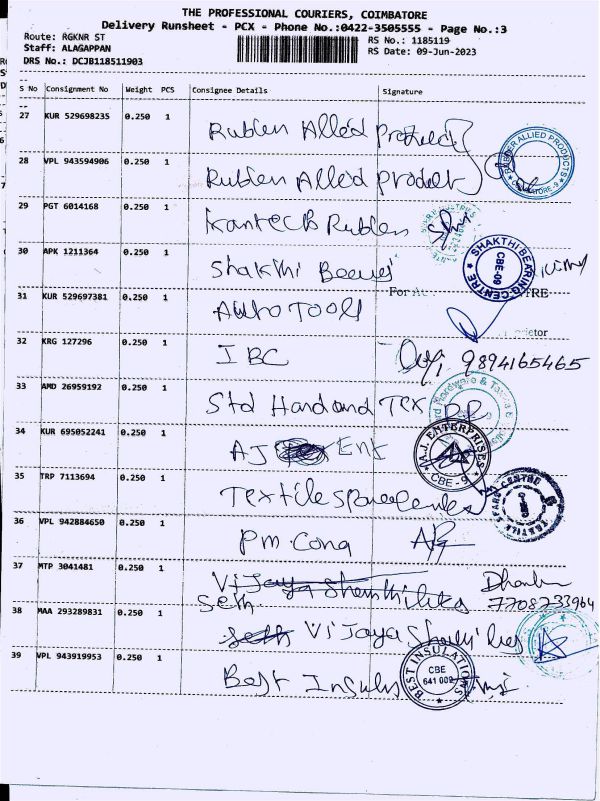 THE PROFESSIONAL COURIERS, COIMBATORE
Delivery Runsheet - PCX - Phone No.:0422-3505555 - Page No.:3
Route: RGKNR ST
RS No.: 1185119
Staff: ALAGAPPAN
RS Date: 09-Jun-2023
DRS No.: DCJB118511903
S No Consignment No Weight PCS Consignee Details Signature
27 KUR 529698235 0.250 1
Rubien Allied
RUBBER ALLIED PRODUCTS
COIMBATORE-9
28 VPL 943594906 0.250 1
Rubien Allied
29 PGT 6014168 0.250 1
Rubien
30 APK 1211364 0.250 1
Shakthi
SHAKTHI BEARING CENTRE
CBE-09
31 KUR 529697381 0.250 1
Auto Tools
For
TRE
32 KRG 127296 0.250 1
IBC 9894165465
33 AMD 26959192 0.250 1
Std Hard and Tex
34 KUR 695052241 0.250 1
AJ Ent
A.J. ENTERPRISES
CBE - 9
35 TRP 7113694 0.250 1
Textile
36 VPL 942884650 0.250 1
Pm.Cona
37 MTP 3041481 0.250 1
Seth 7708233964
38 MAA 293289831 0.250 1
Vijaya
39 VPL 943919953 0.250 1
Best Insuls
BEST INSULATIONS
CBE
641 009